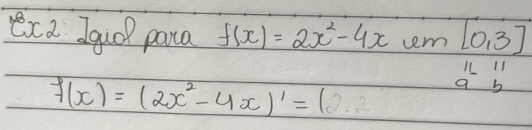 Ex2: Igual para f(x) = 2x² - 4x em [0,3]
" "
a b
f(x) = (2x² - 4x)' = (2.2